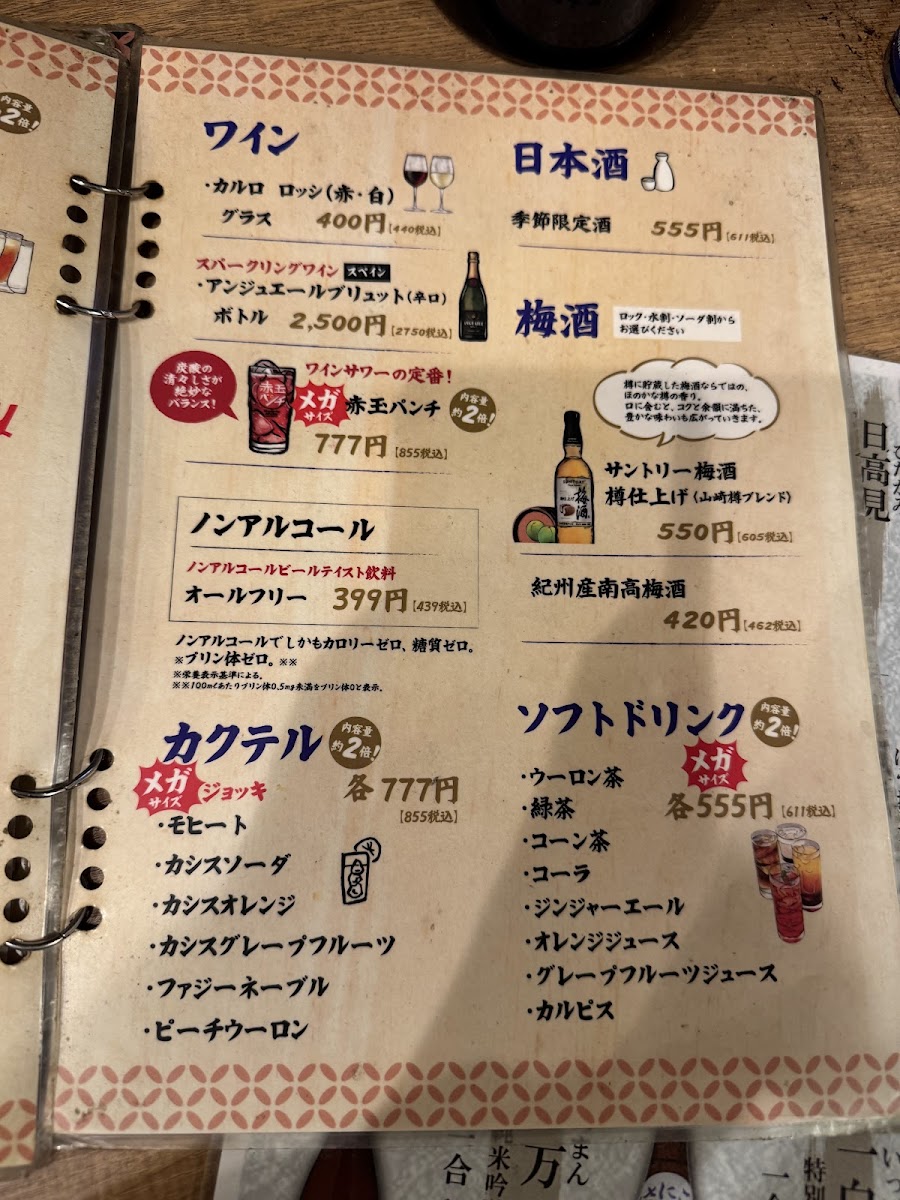 内容量
約2倍!
ワイン
・カルロ ロッシ(赤・白)
グラス 400円【440税込】
スパークリングワイン スペイン
・アンジュエールブリュット(辛口)
ボトル 2,500円【2750税込】
炭酸の
清々しさが
絶妙な
バランス!
赤玉
パンチ
ワインサワーの定番!
メガ
サイズ
赤玉パンチ
内容量
約2倍!
777円【855税込】
ノンアルコール
ノンアルコールビールテイスト飲料
オールフリー 399円【439税込】
ノンアルコールでしかもカロリーゼロ、糖質ゼロ。
※プリン体ゼロ。※※
※栄養表示基準による。
※※100mlあたりプリン体0.5mg未満をプリン体0と表示。
カクテル
内容量
約2倍!
メガ
サイズ
ジョッキ 各777円
【855税込】
・モヒート
・カシスソーダ
・カシスオレンジ
・カシスグレープフルーツ
・ファジーネーブル
・ピーチウーロン
日本酒
季節限定酒 555円【611税込】
梅酒
ロック・水割・ソーダ割から
お選びください
樽に貯蔵した梅酒ならではの、
ほのかな樽の香り。
口に含むと、コクと余韻に満ちた、
豊かな味わいも広がっていきます。
梅酒
サントリー梅酒
樽仕上げ(山崎樽ブレンド)
550円【605税込】
紀州産南高梅酒
420円【462税込】
ソフトドリンク
内容量
約2倍!
メガ
サイズ
各555円【611税込】
・ウーロン茶
・緑茶
・コーン茶
・コーラ
・ジンジャーエール
・オレンジジュース
・グレープフルーツジュース
・カルピス
日高見
ひたかみ
まん
万
純米吟
一合
特別